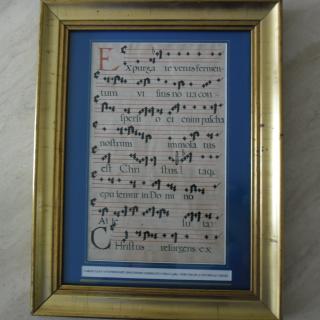 Expurga te vetus fermen-
tum vt sitis no ua con-
spersi o et enim pascha
nostrum immola tus
est Chri stus. itaq.
epu lemur in Do mi no
Al le lu ia.
Christus resurgens ex